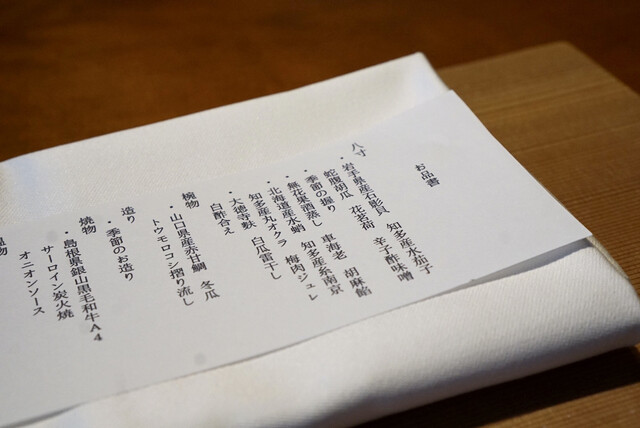 お品書
八寸
・岩手県産石影貝 知多産水茄子
蛇腹胡瓜 花茗荷 辛子酢味噌
・季節の握り 車海老 胡麻餡
・無花果酒蒸し 知多産糸南京
・北海道産水蛸 梅肉ジュレ
知多産丸オクラ 白瓜雷干し
・大徳寺麩
白酢合え
椀物
・山口県産赤甘鯛 冬瓜
トウモロコシ摺り流し
造り
・季節のお造り
焼物
・島根県銀山黒毛和牛A4
サーロイン炭火焼
オニオンソース
物